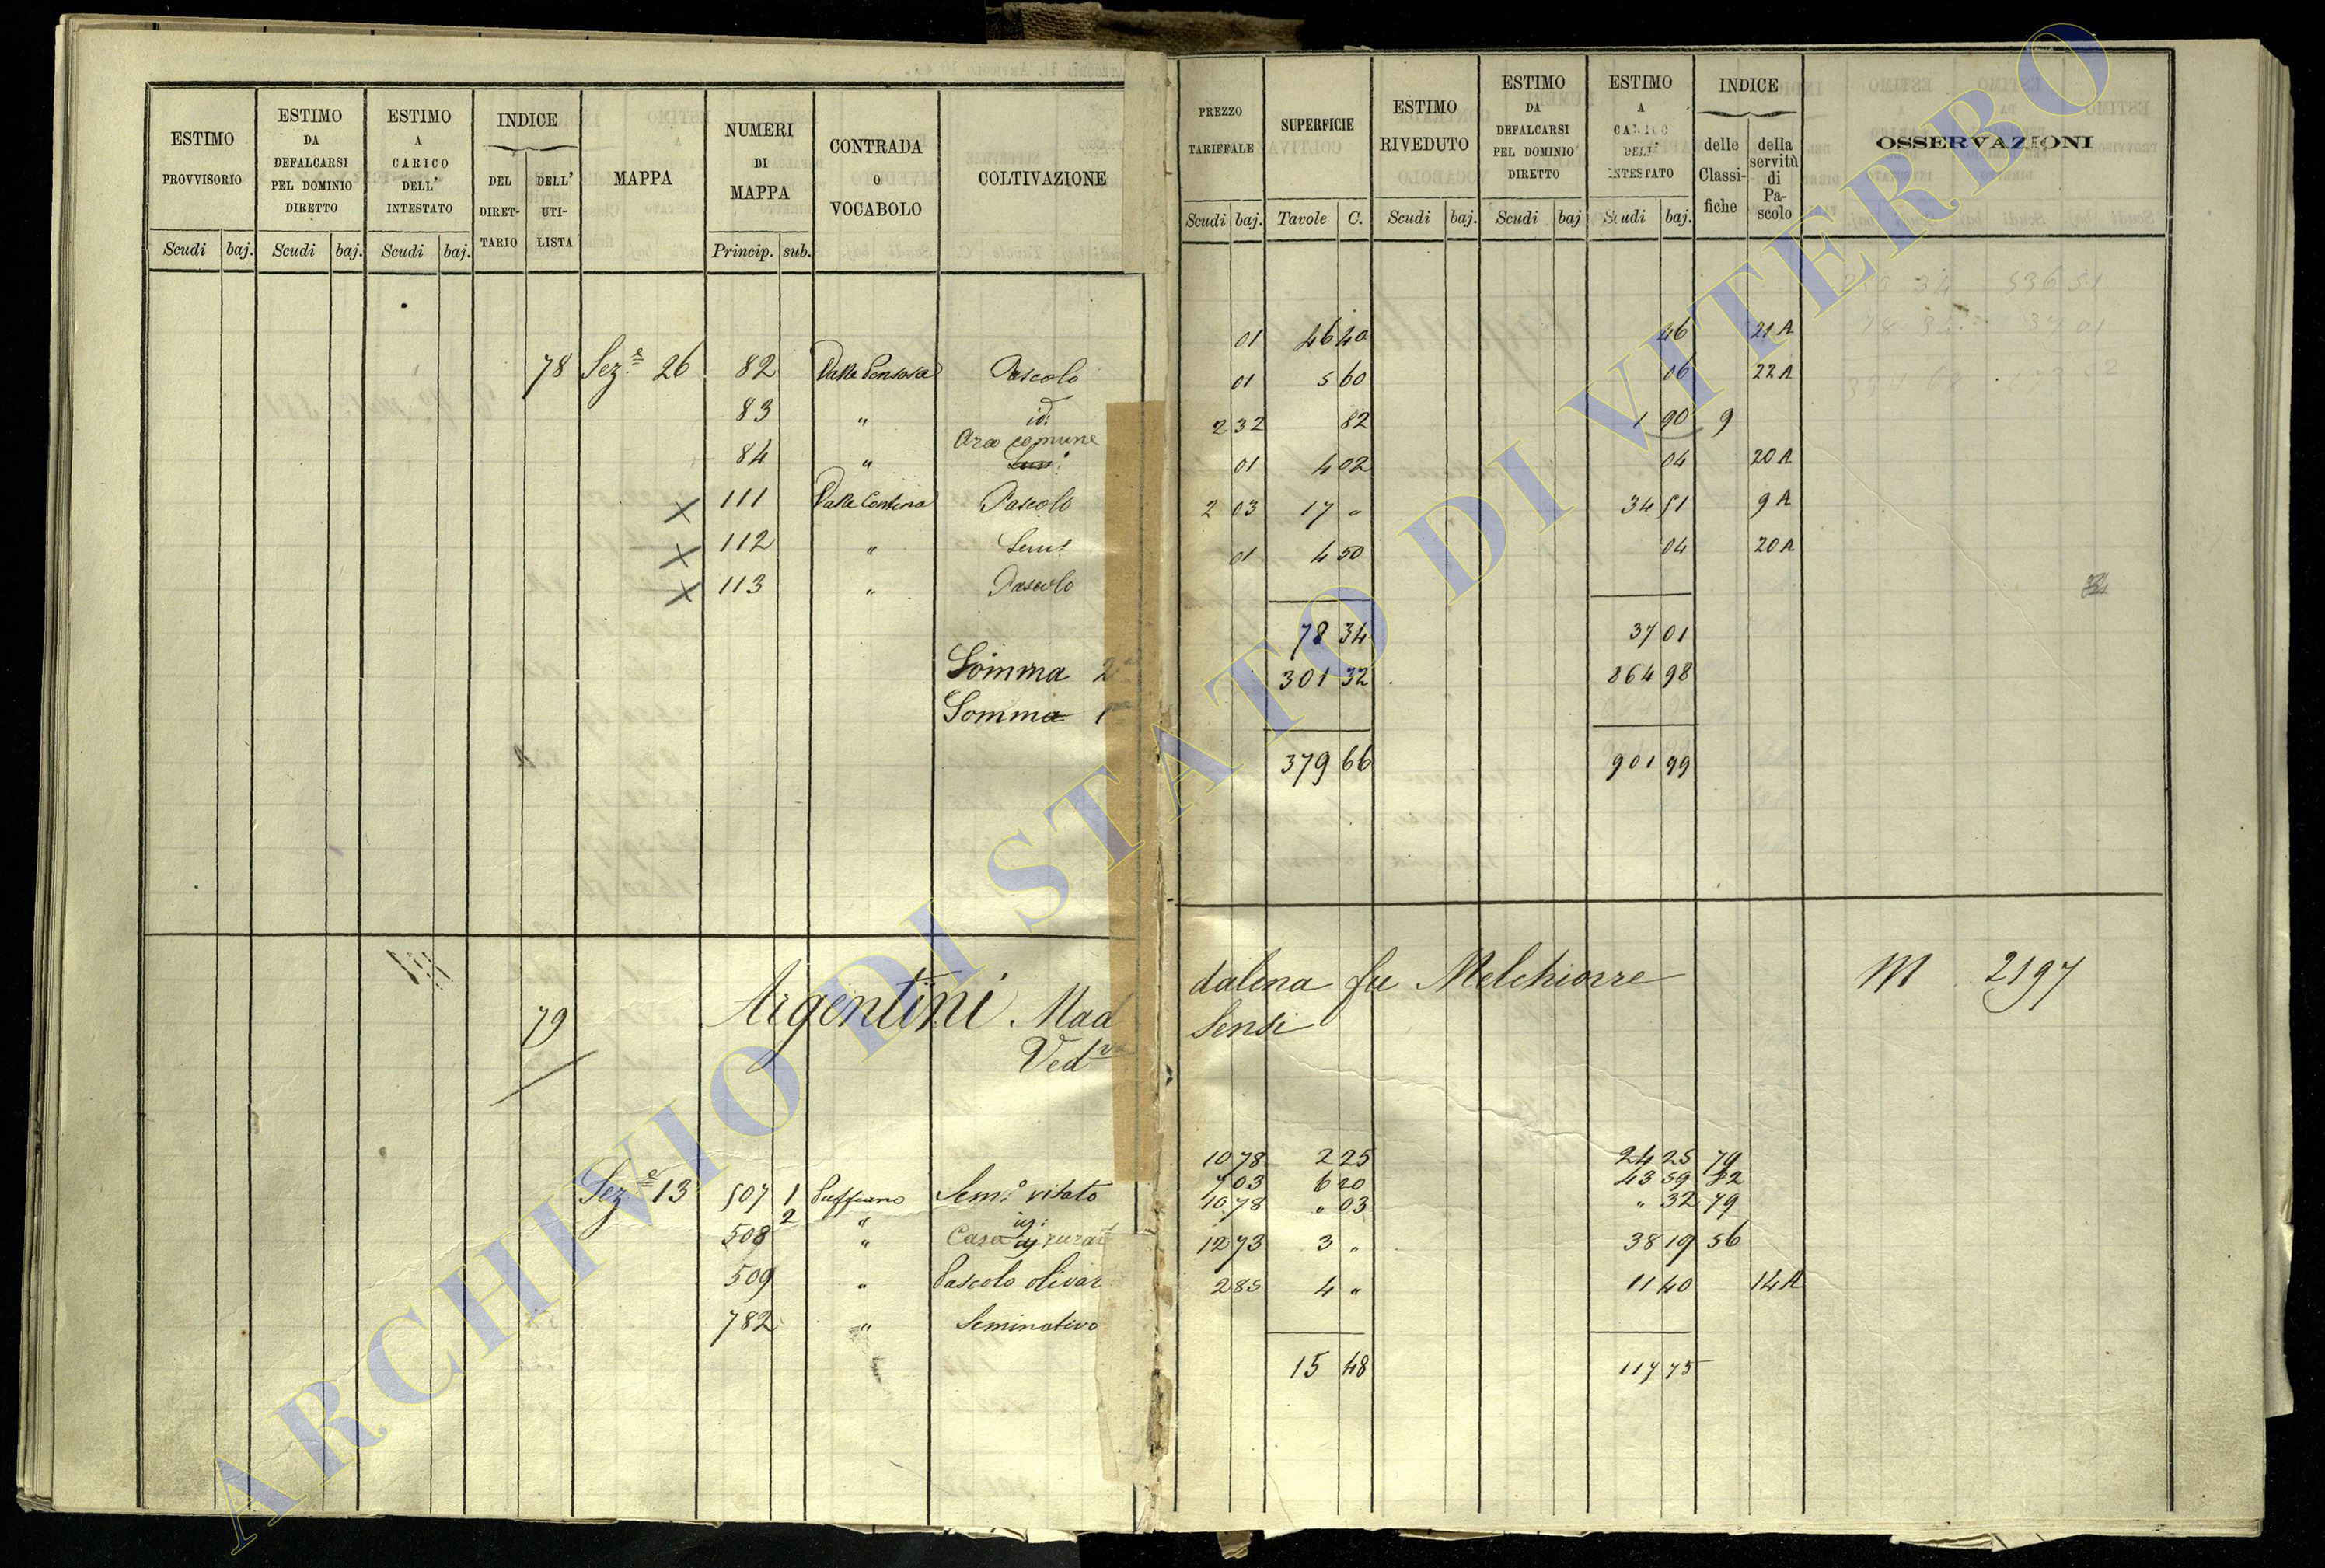 ESTIMO PROVVISORIO Scudi baj.
ESTIMO DA DEFALCARSI PEL DOMINIO DIRETTO Scudi baj.
ESTIMO A CARICO DELL' INTESTATO Scudi baj.
INDICE DEL DIRETTARIO DELL' UTILISTA
MAPPA
NUMERI DI MAPPA Princip. sub.
CONTRADA O VOCABOLO
COLTIVAZIONE
PREZZO TARIFFALE Scudi baj.
SUPERFICIE Tavole C.
ESTIMO RIVEDUTO Scudi baj.
ESTIMO DA DEFALCARSI PEL DOMINIO DIRETTO Scudi baj
ESTIMO A CARICO DELL' INTESTATO Scudi baj.
INDICE delle Classifiche della servitù di Pascolo
OSSERVAZIONI
78 Sez.e 26 82 Pascolo 01 46 40 46 21 A
83 " id: 01 5 60 06 22 A
84 " Ara comune 2 32 82 1 90 9
111 Pascolo 01 4 02 04 20 A
112 " Sem.o 2 03 17 " 34 51 9 A
113 " Pascolo 01 4 50 04 20 A
78 34 37 01
Somma 2a 301 32 864 98
Somma 1a
379 66 901 99
79 Argentini Maddalena fu Melchiorre M 2197
Ved.va Sensi
Sez.e 13 507 1 Sem.o vitato 10 78 2 25 24 25 79
2 " id: 7 03 6 20 43 59 82
508 " Casa rurale 10 78 " 03 " 32 79
509 " Pascolo olivato 12 73 3 " 38 19 56
782 " Seminativo 2 85 4 " 11 40 14 A
15 48 117 75
ARCHIVIO DI STATO DI VITERBO